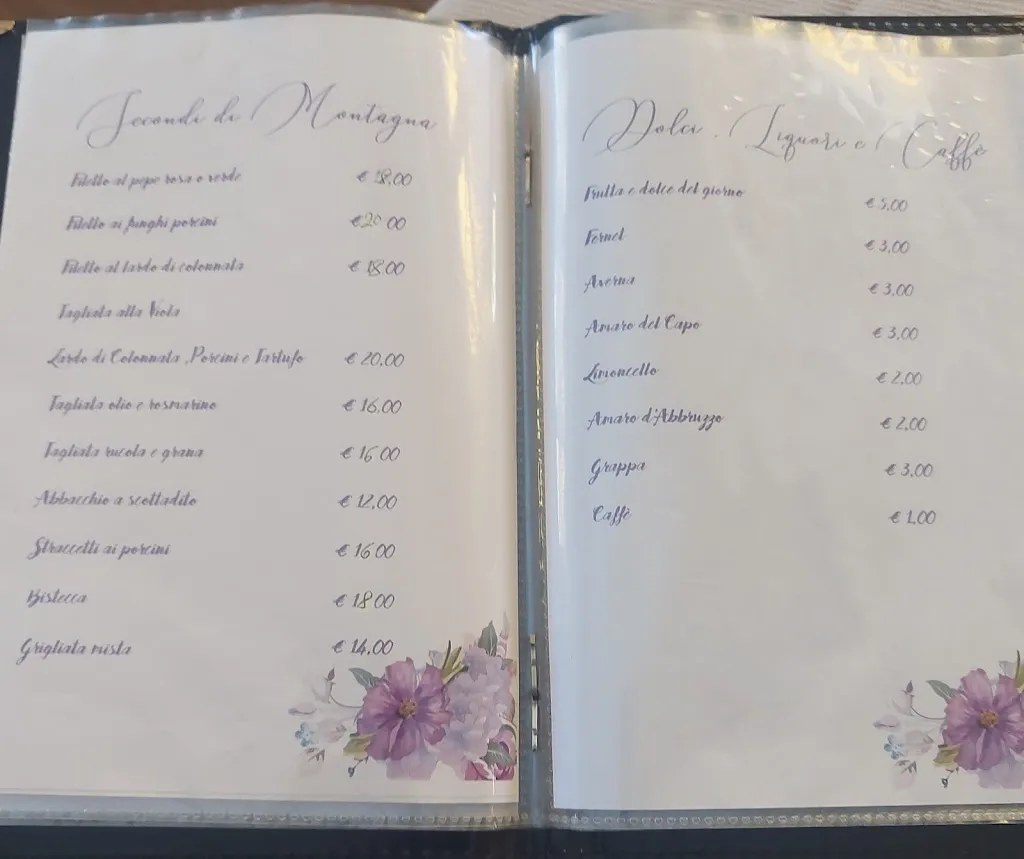 Secondi di Montagna
Filetto al pepe rosa o verde € 18,00
Filetto ai funghi porcini € 20,00
Filetto al lardo di colonnata € 18,00
Tagliata alla Viola
Lardo di Colonnata ,Porcini e Tartufo € 20,00
Tagliata olio e rosmarino € 16,00
Tagliata rucola e grana € 16,00
Abbacchio a scottadito € 12,00
Straccetti ai porcini € 16,00
Bistecca € 18,00
Grigliata mista € 14,00
Dolci , Liquori e Caffè
Frutta e dolce del giorno € 5,00
Fernet € 3,00
Averna € 3,00
Amaro del Capo € 3,00
Limoncello € 2,00
Amaro d'Abbruzzo € 2,00
Grappa € 3,00
Caffè € 1,00